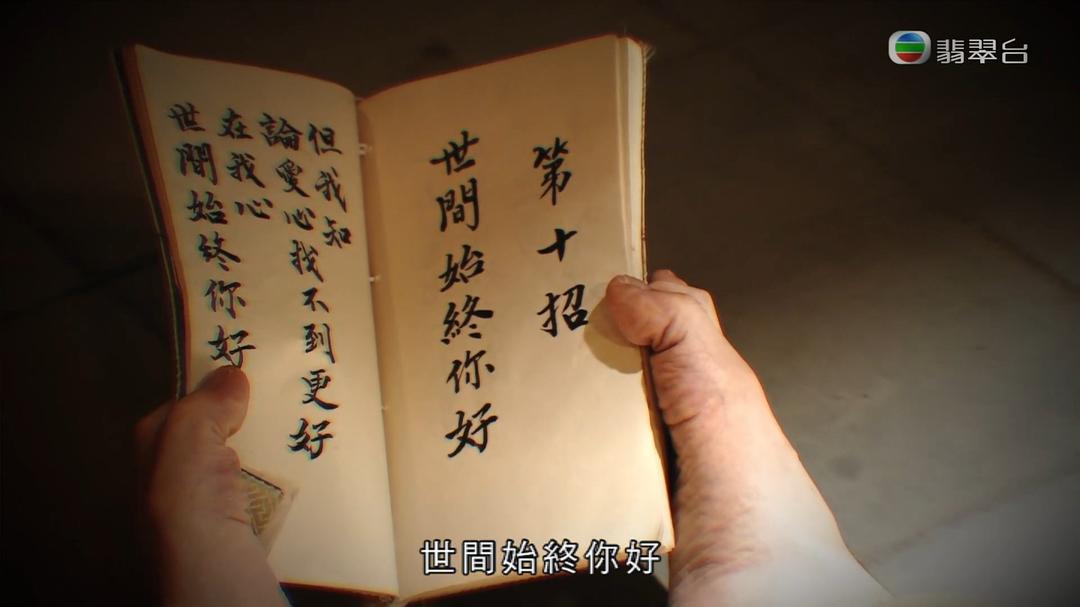 翡翠台
第十招
世間始終你好
但我知
論愛心找不到更好
在我心
世間始終你好
世間始終你好